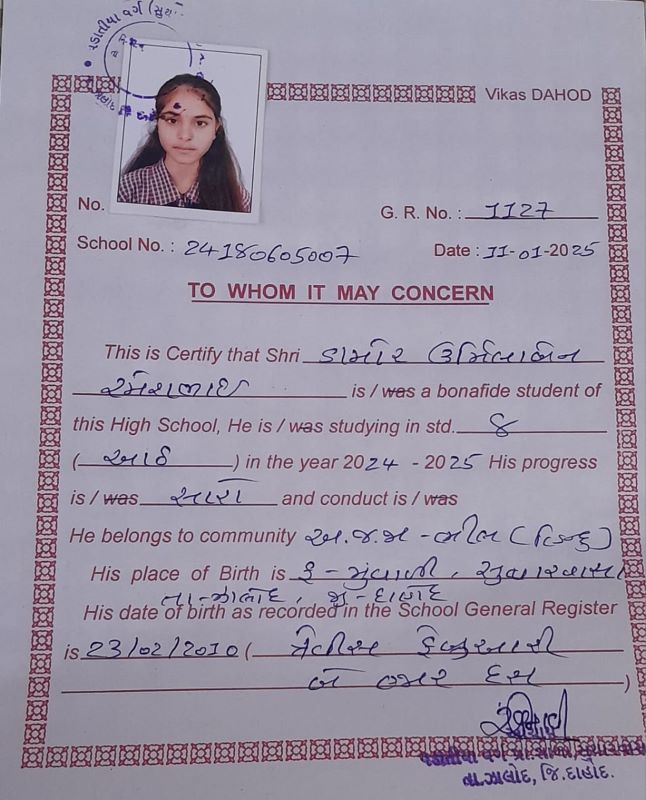 પડાતીયા વર્ગ (સુથા
Vikas DAHOD
No.
G. R. No. : 1127
School No. : 24180605007
Date : 11-01-2025
TO WHOM IT MAY CONCERN
This is Certify that Shri ડામોર ઉર્મિલાબેન
રમેશભાઇ is / was a bonafide student of
this High School, He is / was studying in std. 8
( આઠ ) in the year 2024 - 2025 His progress
is / was સારી and conduct is / was
He belongs to community અ.જ.જા - ભીલ (હિન્દુ)
His place of Birth is
તા-ઝાલોદ, જી-દાહોદ
His date of birth as recorded in the School General Register
is 23/02/2010 ( ત્રેવીસ ફેબ્રુઆરી
બે હજાર દસ )
તા.ઝાલોદ, જિ.દાહોદ.